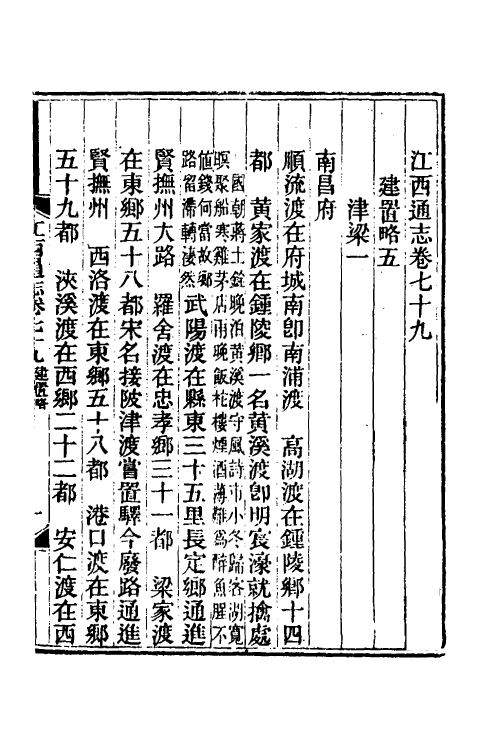 江西通志卷七十九
建置略五
津梁一
南昌府
順流渡在府城南卽南浦渡　高湖渡在鍾陵鄉十四
都　黃家渡在鍾陵鄉一名黃溪渡卽明宸濠就擒處
國朝蔣士銓晚泊黃溪渡守風詩市小冬歸客湖寬
暝聚船寒雞茅店雨晚飯柁樓煙酒薄難爲醉魚腥不
値錢何當故鄉
路留滯轉淒然　武陽渡在縣東三十五里長定鄉通進
賢撫州大路　羅舍渡在忠孝鄉三十一都　梁家渡
在東鄉五十八都宋名接陂津渡嘗置驛今廢路通進
賢撫州　西洛渡在東鄉五十八都　港口渡在東鄉
五十九都　浹溪渡在西鄉二十二都　安仁渡在西
江西通志卷七十九　建置略　一